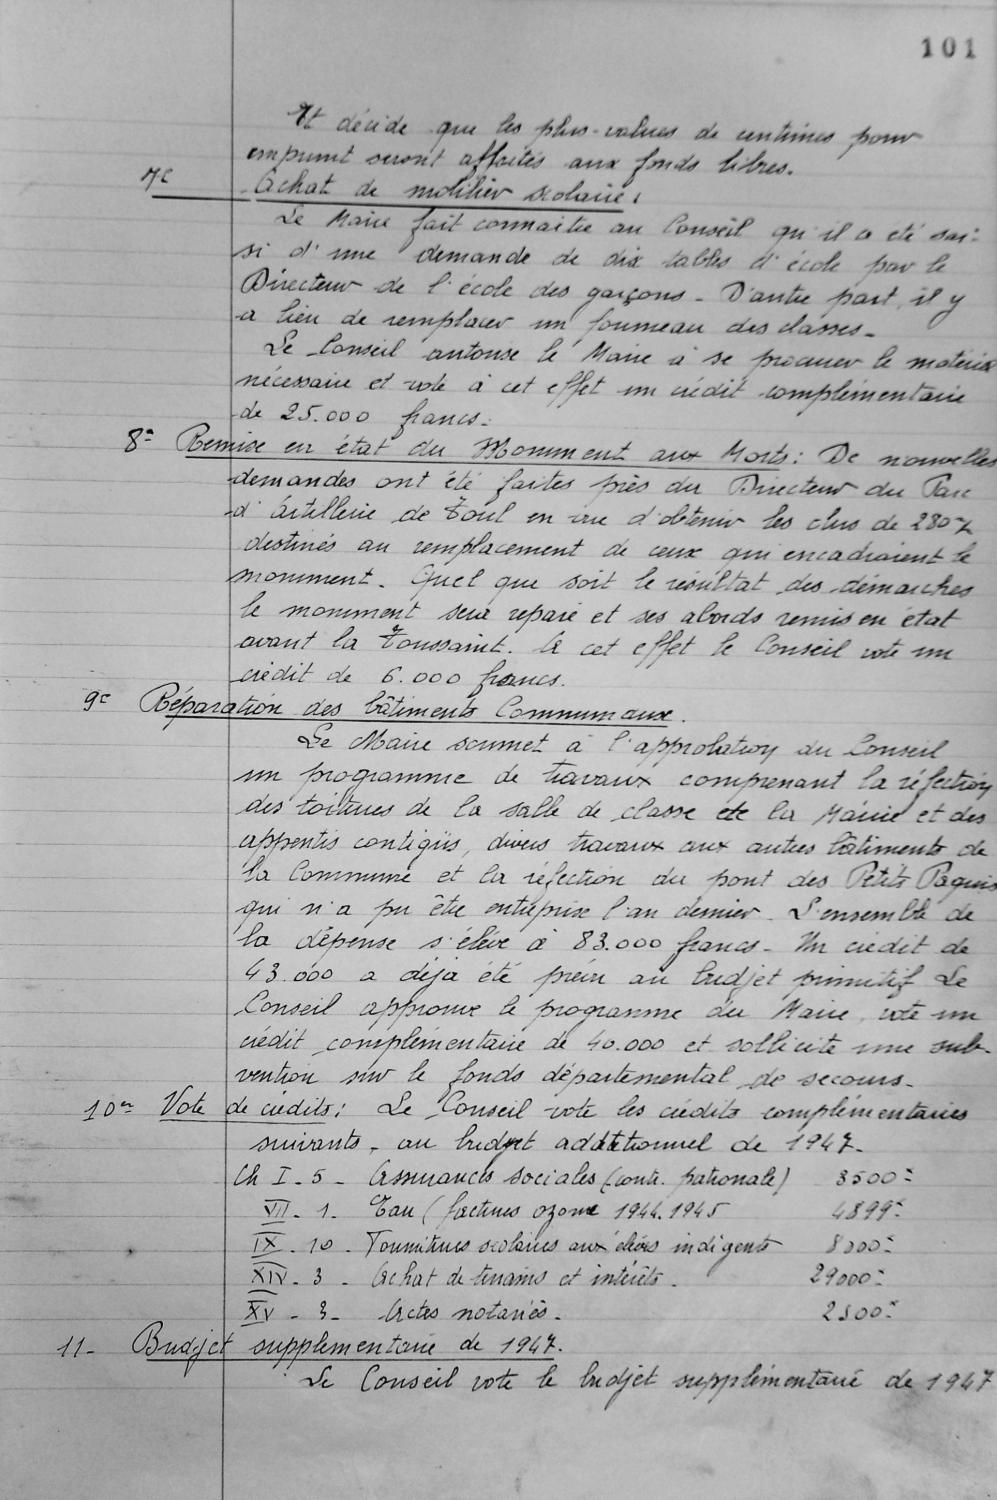 101
Et décide que les plus-values de centimes pour
emprunt seront affectés aux fonds libres.
7e Achat de mobilier scolaire :
Le Maire fait connaitre au Conseil qu'il a été sai-
si d'une demande de dix tables d'école par le
Directeur de l'école des garçons - D'autre part, il y
a lieu de remplacer un fourneau des classes -
Le Conseil autorise le Maire à se procurer le matériel
nécessaire et vote à cet effet un crédit complémentaire
de 25.000 francs -
8e Remise en état du Monument aux Morts : De nouvelles
demandes ont été faites près du Directeur du Parc
d'Artillerie de Toul en vue d'obtenir les obus de
destinés au remplacement de ceux qui encadraient le
monument - Quel que soit le résultat des démarches
le monument sera réparé et ses abords remis en état
avant la Toussaint. A cet effet le Conseil vote un
crédit de 6.000 francs.
9e Réparation des bâtiments Communaux.
Le Maire soumet à l'approbation du Conseil
un programme de travaux comprenant la réfection
des toitures de la salle de classe de la Mairie et des
appentis contigüs, divers travaux aux autres bâtiments de
la Commune et la réfection du pont des Petits Paquis
qui n'a pu être entreprise l'an dernier - L'ensemble de
la dépense s'élève à 83.000 francs - Un crédit de
43.000 a déjà été prévu au budjet primitif Le
Conseil approuve le programme du Maire, vote un
crédit complémentaire de 40.000 et sollicite une sub-
vention sur le fonds départemental de secours -
10e Vote de crédits : Le Conseil vote les crédits complémentaires
suivants - au budjet additionnel de 1947 -
Ch I - 5 - Assurances sociales (contr. patronale) 3500 -
VII - 1 - Eau (factures ozone 1944.1945 4899 -
IX - 10 - Fournitures scolaires aux élèves indigents 8000 -
XIV - 3 - Achat de terrains et intérêts - 29000 -
XV - 3 - Actes notariés - 2500 -
11 - Budjet supplémentaire de 1947.
Le Conseil vote le budjet supplémentaire de 1947